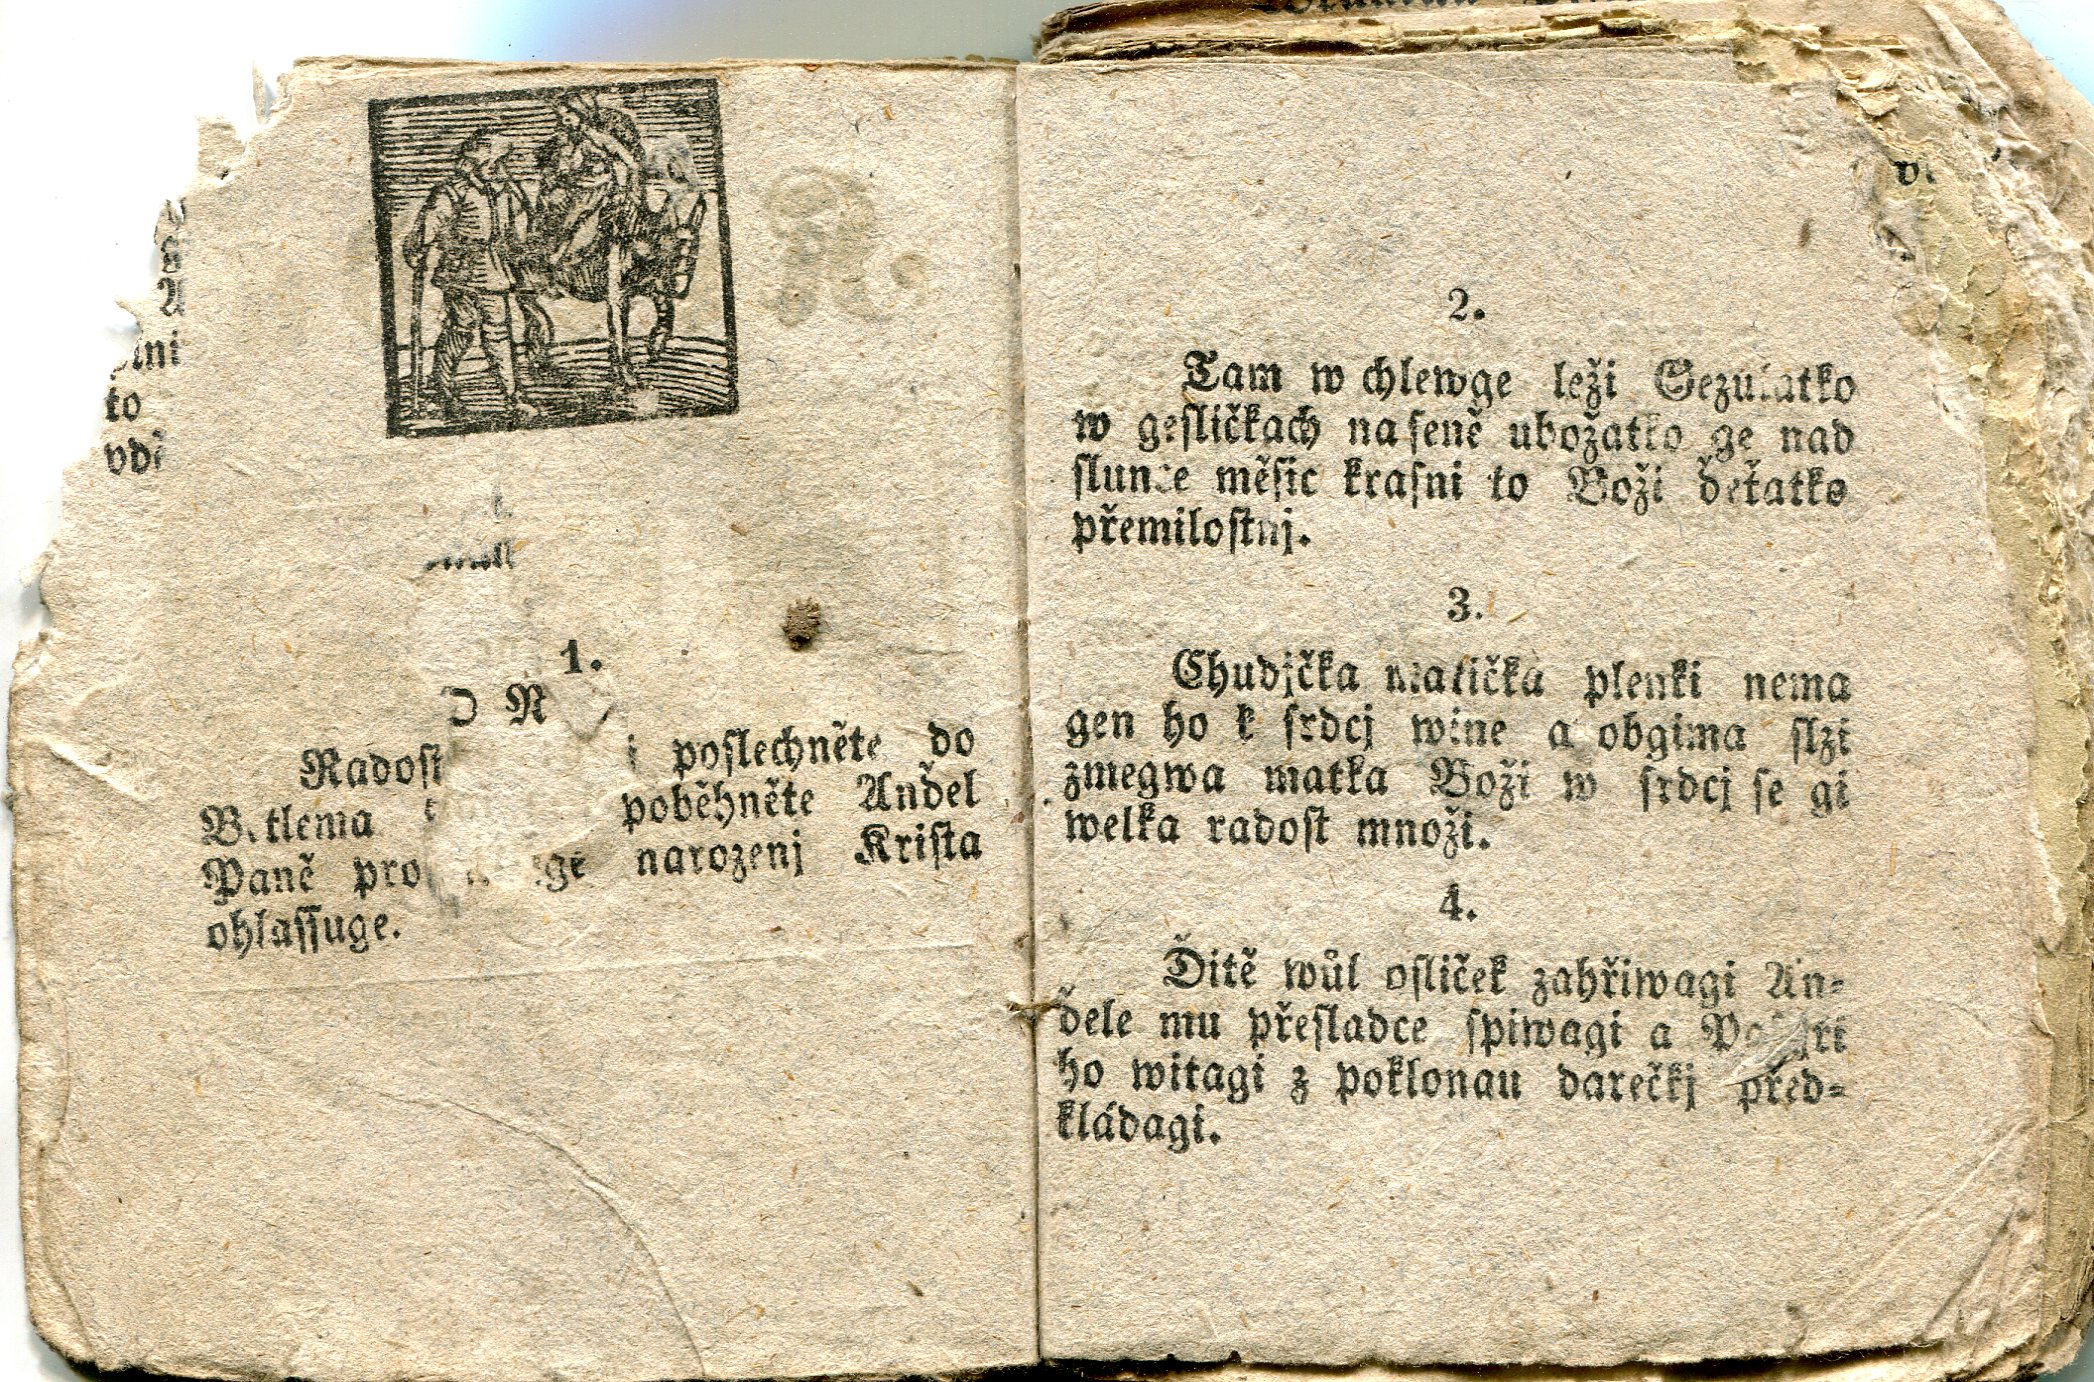 to
1.
Radost poslechněte do
poběhněte Anďel
Paně narozenj Krista
ohlassuge.
2.
Tam w chlewge leži Gezulatko
w gesličkach na seně ubožatko ge nad
slunce měsic krasni to Boži ďeťatko
přemilostnj.
3.
Chudjčka matička plenki nema
gen ho k srdcj wine a obgima slzi
zmegwa matka Boži w srdcj se gi
welka radost množi.
4.
Ďitě wůl osliček zahřiwagi An=
ďele mu přesladce spiwagi a
ho witagi z poklonau darečkj před=
kládagi.